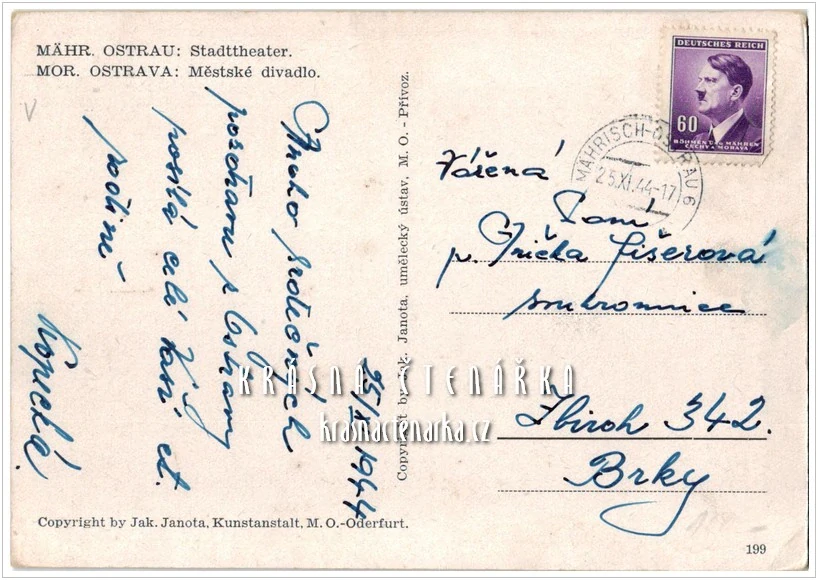 MÄHR. OSTRAU: Stadttheater.
MOR. OSTRAVA: Městské divadlo.
Mnoho srdečných
pozdravů z Ostravy
posílá celé Vaší ct.
rodině
Kopecká
25/XI 1944
Copyright by Jak. Janota, umělecký ústav, M. O. - Přívoz.
DEUTSCHES REICH
60
BÖHMEN U. MÄHREN
ČECHY A MORAVA
MÄHRISCH-OSTRAU 6
25.XI.44-17
Vážená
Paní
p. Fišerová
soukromnice
Zbiroh 342.
Brky
KRÁSNÁ ČTENÁŘKA
krasnactenarka.cz
Copyright by Jak. Janota, Kunstanstalt, M. O.-Oderfurt.
199